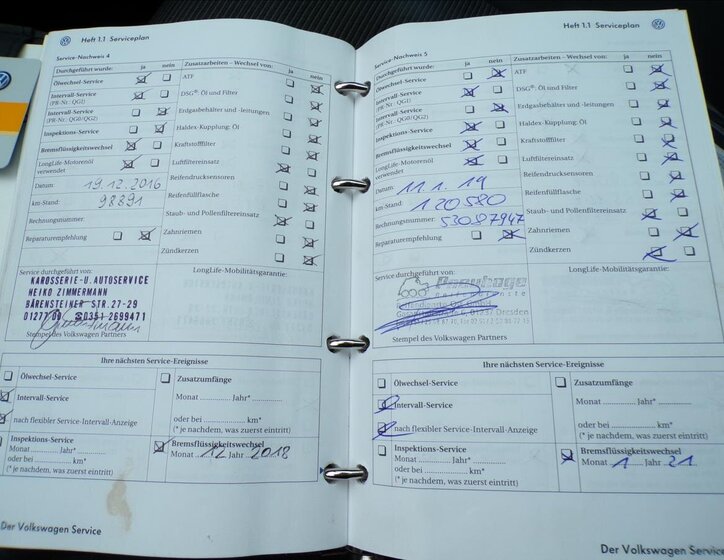 Heft 1.1 Serviceplan
Service-Nachweis 4
Durchgeführt wurde: ja nein
Ölwechsel-Service
Intervall-Service
(PR-Nr.: QG1)
Intervall-Service
(PR-Nr.: QG0/QG2)
Inspektions-Service
Bremsflüssigkeitswechsel
LongLife-Motorenöl
verwendet
Datum: 19.12.2016
km-Stand: 98891
Rechnungsnummer:
Reparaturempfehlung
Zusatzarbeiten - Wechsel von: ja nein
ATF
DSG®: Öl und Filter
Erdgasbehälter und -leitungen
Haldex-Kupplung: Öl
Kraftstofffilter
Luftfiltereinsatz
Reifendrucksensoren
Reifenfüllflasche
Staub- und Pollenfiltereinsatz
Zahnriemen
Zündkerzen
Service durchgeführt von:
KAROSSERIE-U. AUTOSERVICE
HEIKO ZIMMERMANN
BÄRENSTEINER STR. 27-29
Stempel des Volkswagen Partners
LongLife-Mobilitätsgarantie:
Ihre nächsten Service-Ereignisse
Ölwechsel-Service
Intervall-Service
nach flexibler Service-Intervall-Anzeige
Inspektions-Service
Monat ........... Jahr ........*
oder bei ................ km*
(* je nachdem, was zuerst eintritt)
Zusatzumfänge
Monat ........... Jahr ........*
oder bei ................ km*
(* je nachdem, was zuerst eintritt)
Bremsflüssigkeitswechsel
Monat 12 Jahr 2018
Der Volkswagen Service
Heft 1.1 Serviceplan
Service-Nachweis 5
Durchgeführt wurde: ja nein
Ölwechsel-Service
Intervall-Service
(PR-Nr.: QG1)
Intervall-Service
(PR-Nr.: QG0/QG2)
Inspektions-Service
Bremsflüssigkeitswechsel
LongLife-Motorenöl
verwendet
Datum: 11.1.19
km-Stand: 120580
Rechnungsnummer: 53087947
Reparaturempfehlung
Zusatzarbeiten - Wechsel von: ja nein
ATF
DSG®: Öl und Filter
Erdgasbehälter und -leitungen
Haldex-Kupplung: Öl
Kraftstofffilter
Luftfiltereinsatz
Reifendrucksensoren
Reifenfüllflasche
Staub- und Pollenfiltereinsatz
Zahnriemen
Zündkerzen
Service durchgeführt von:
01237 Dresden
Stempel des Volkswagen Partners
LongLife-Mobilitätsgarantie:
Ihre nächsten Service-Ereignisse
Ölwechsel-Service
Intervall-Service
nach flexibler Service-Intervall-Anzeige
Inspektions-Service
Monat ........... Jahr ........*
oder bei ................ km*
(* je nachdem, was zuerst eintritt)
Zusatzumfänge
Monat ........... Jahr ........*
oder bei ................ km*
(* je nachdem, was zuerst eintritt)
Bremsflüssigkeitswechsel
Monat 1 Jahr 21
Der Volkswagen Service